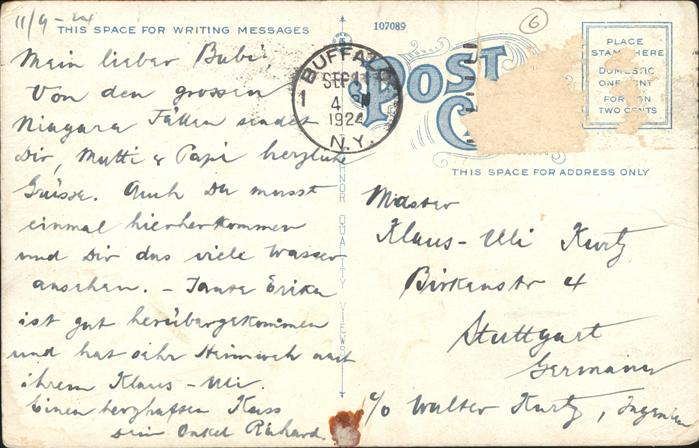 11/9-24
THIS SPACE FOR WRITING MESSAGES
107089
6
Mein lieber Bubi,
Von den grossen
Niagara Fällen sendet
Dir, Mutti & Papi herzliche
Grüsse. Auch Du musst
einmal hierherkommen
und Dir das viele Wasser
ansehen. – Tante Erika
ist gut herübergekommen
und hat sehr Heimweh nach
ihrem Klaus-Uli.
Einen herzhaften Kuss
Dein Onkel Richard.
BUFFALO
SEP 11
1
4 PM
1924
N.Y.
POST
C
PLACE
STAMP HERE
DOMESTIC
ONE CENT
FOREIGN
TWO CENTS
THIS SPACE FOR ADDRESS ONLY
QUALITY VIEWS
Master
Klaus-Uli Kurtz
Birkenstr 4
Stuttgart
Germany
c/o Walter Kurtz, Ingenieur